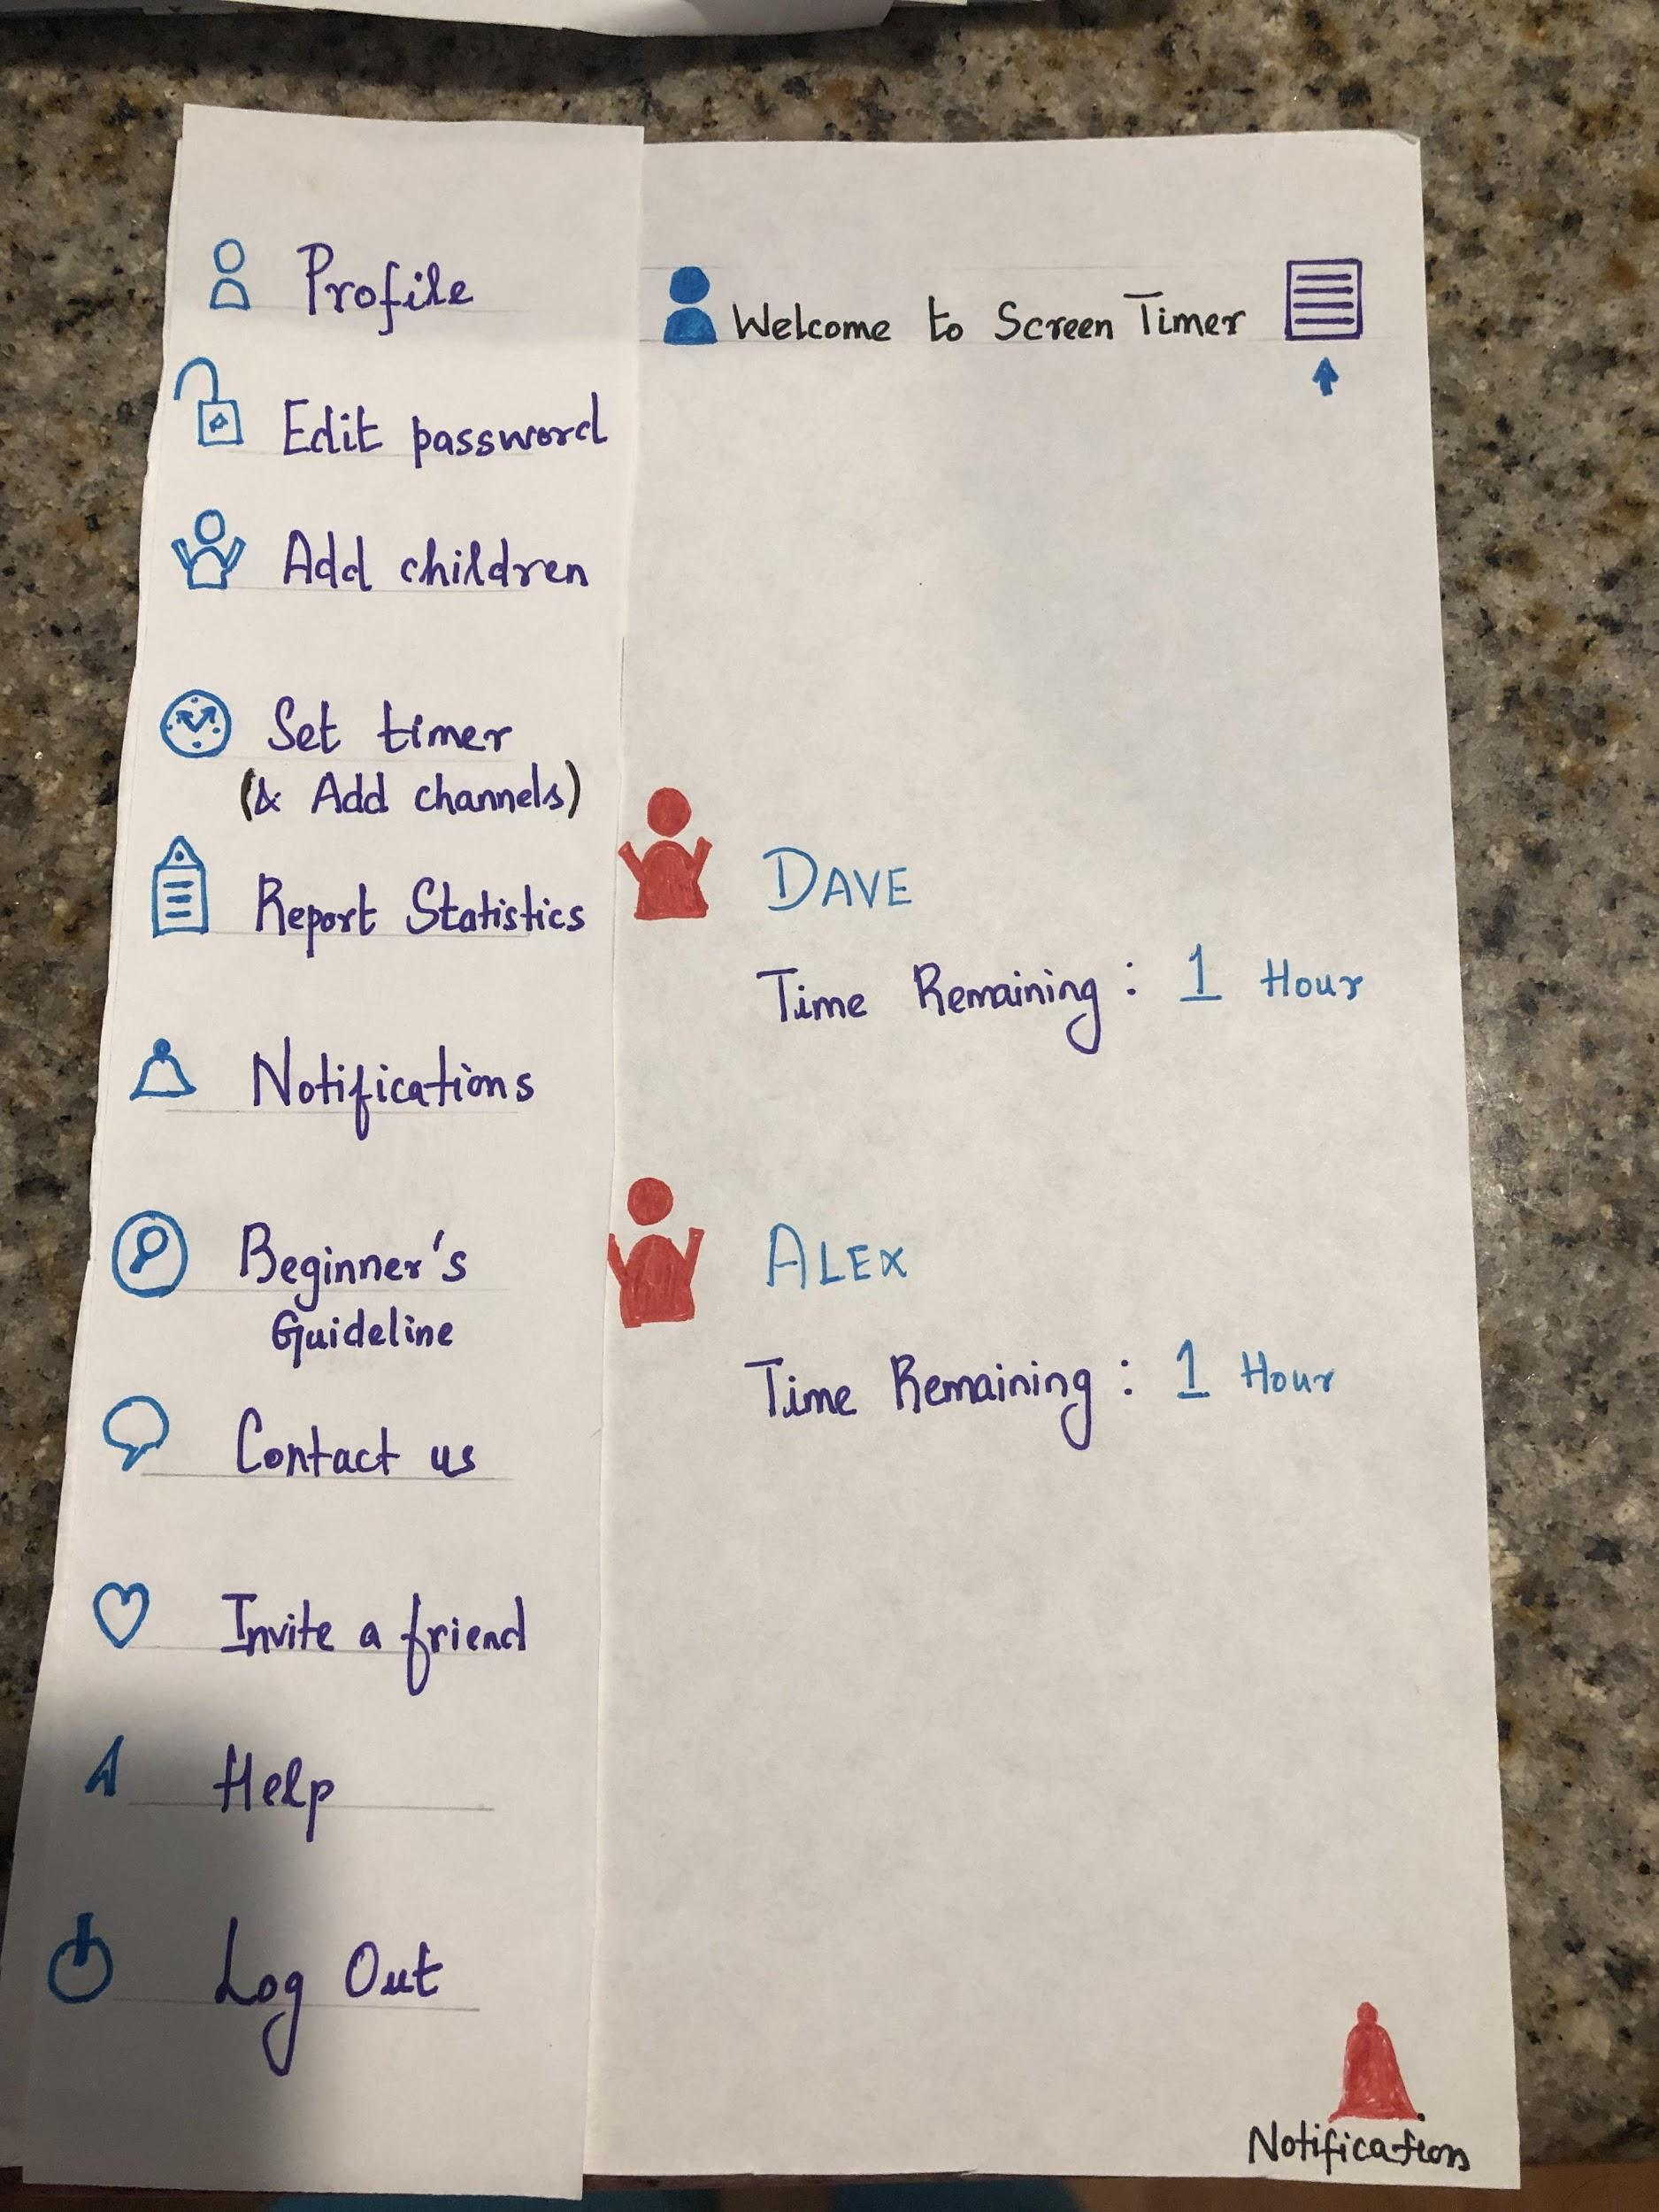 Profile
Edit password
Add children
Set timer
(& Add channels)
Report Statistics
Notifications
Beginner's
Guideline
Contact us
Invite a friend
Help
Log Out
Welcome to Screen Timer
DAVE
Time Remaining : 1 Hour
ALEX
Time Remaining : 1 Hour
Notifications